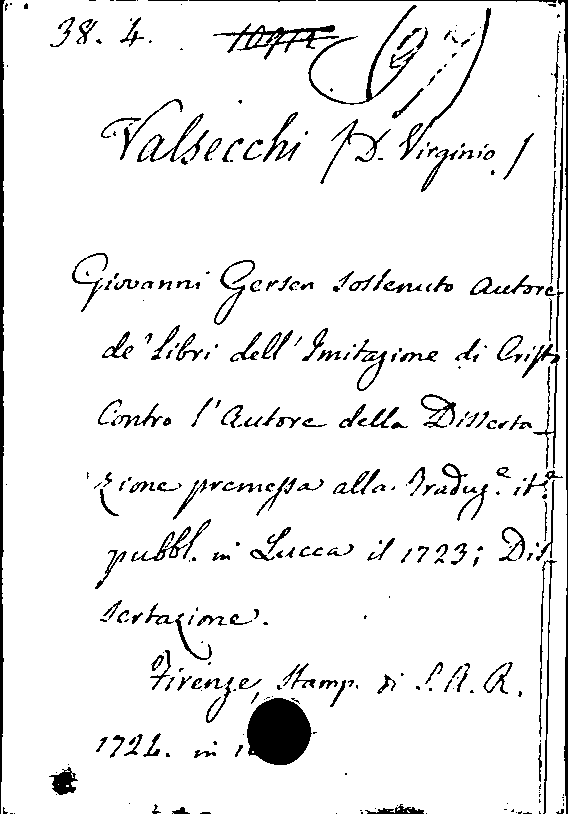 38. 4. (97)
Valsecchi /D. Virginio./
Giovanni Gersen sostenuto autore
de' Libri dell' Imitazione di Cristo
Contro l'Autore della Disserta-
zione premessa alla Traduz.e it.a
pubbl. in Lucca il 1723; Dis-
sertazione.
Firenze, Stamp. di S. A. R.
1724. in